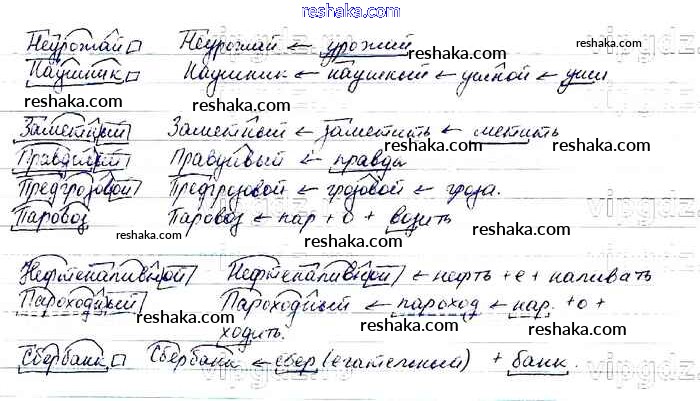 reshaka.com
Неурожай Неурожай ← урожай
reshaka.com
Наушник Наушник ← наушный ← ушной ← уши
reshaka.com reshaka.com
Заметный Заметный ← заметить ← метить
reshaka.com
Правдивый Правдивый ← правда
reshaka.com
Предгрозовой Предгрозовой ← грозовой ← гроза.
reshaka.com
Паровоз Паровоз ← пар + о + возить
reshaka.com reshaka.com
Нефтеналивной Нефтеналивной ← нефть + е + наливать
reshaka.com
Пароходный Пароходный ← пароход ← пар + о +
reshaka.com reshaka.com
ходить.
reshaka.com
Сбербанк Сбербанк ← сбер(егательный) + банк.
reshaka.com reshaka.com